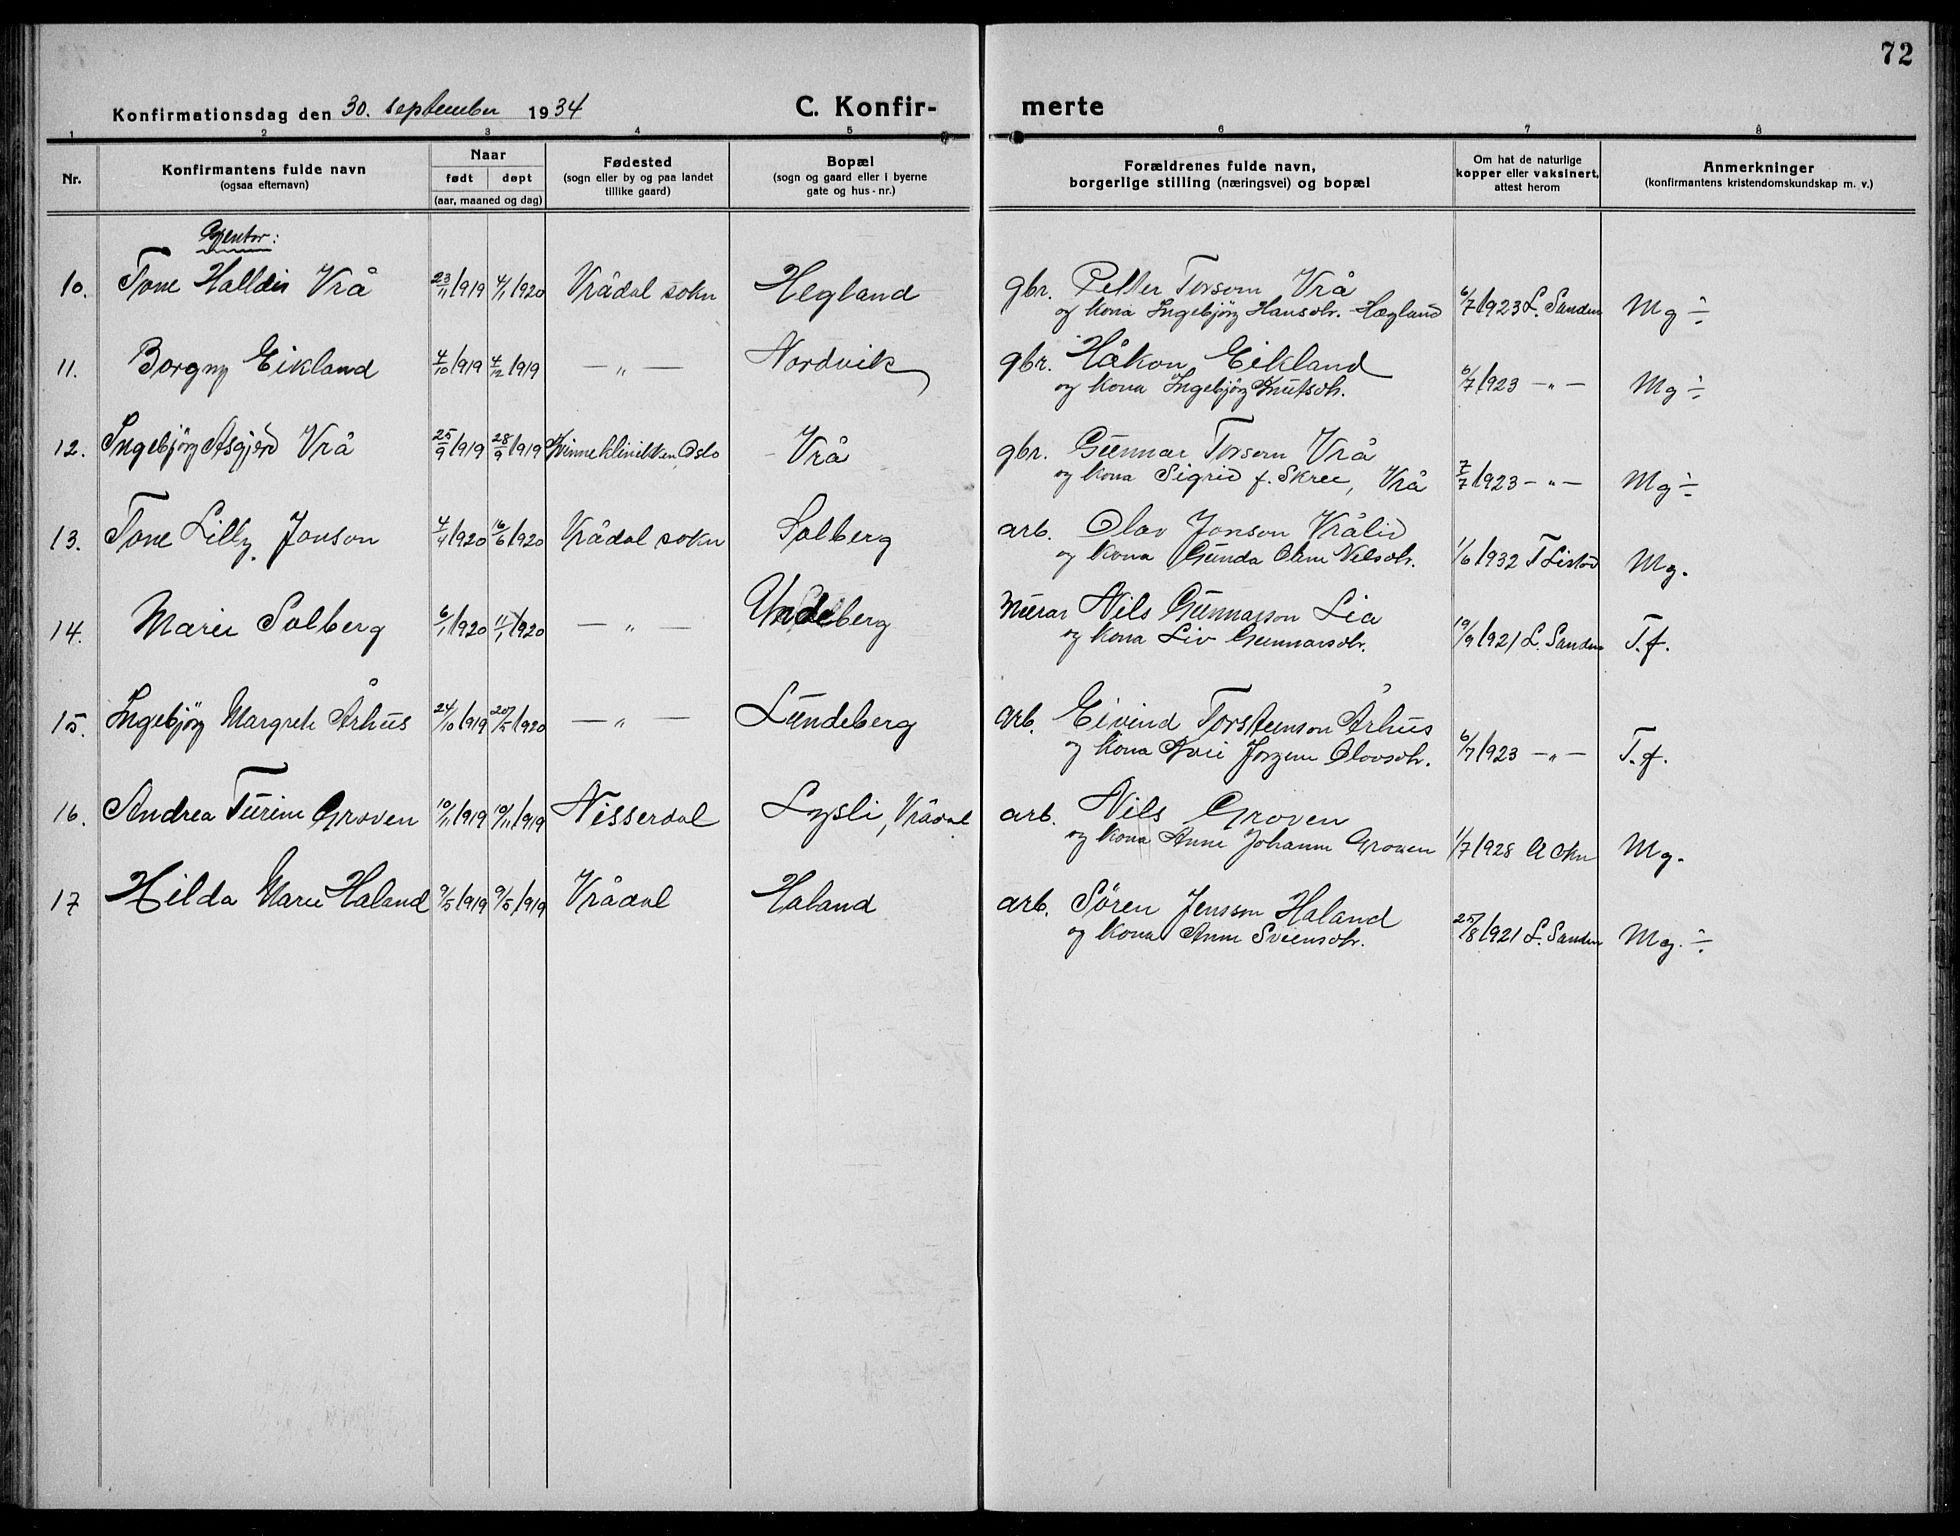 72
Konfirmationsdag den 30. september 1934 C. Konfir- merte
1 2 3 4 5 6 7 8
Nr.
Konfirmantens fulde navn
(ogsaa efternavn)
Naar
født døpt
(aar, maaned og dag)
Fødested
(sogn eller by og paa landet
tillike gaard)
Bopæl
(sogn og gaard eller i byerne
gate og hus-nr.)
Forældrenes fulde navn,
borgerlige stilling (næringsvei) og bopæl
Om hat de naturlige
kopper eller vaksinert,
attest herom
Anmerkninger
(konfirmantens kristendomskundskap m. v.)
Gjentor:
10. Tone Halldis Vrå 23/11 1919 4/1 1920 Vrådal sokn Hegland gbr. Petter Torson Vrå 6/7 1923 L. Sanden Mg ÷
og kona Ingebjørg Hansdtr. Hægland
11. Borgny Eikland 4/10 1919 4/12 1919 — „ — Nordvik gbr. Håkon Eikland 6/7 1923 — „ — Mg ÷
og kona Ingebjørg Knutsdtr.
12. Ingebjørg Asgjerd Vrå 25/9 1919 28/9 1919 Kvinneklinikken, Oslo Vrå gbr. Gunnar Torson Vrå 7/7 1923 — „ — Mg ÷
og kona Sigrid f. Skree, Vrå
13. Tone Lilly Jonson 4/4 1920 16/6 1920 Vrådal sokn Solberg arb. Olav Jonson Vrålid 1/6 1932 T Listod Mg.
og kona Gunda Oline Nilsdtr.
14. Marie Solberg 6/1 1920 11/1 1920 — „ — Undeberg murar Nils Gunnarson Lia 19/9 1921 L. Sanden T.f.
og kona Liv Gunnarsdtr.
15. Ingebjørg Margreth Århus 24/10 1919 20/5 1920 — „ — Lundeberg arb. Eivind Torsteinson Århus 6/7 1923 — „ — T.f.
og kona Jorgine Olavsdtr.
16. Andrea Turine Groven 10/11 1919 10/11 1919 Nisserdal Lysli, Vrådal arb. Nils Groven 1/7 1928 Mg.
og kona Anne Johanne Groven
17 Hilda Marie Haland 9/5 1919 9/5 1919 Vrådal Haland arb. Søren Jensson Haland 25/8 1921 L. Sanden Mg. ÷
og kona Anne Sveinsdtr.